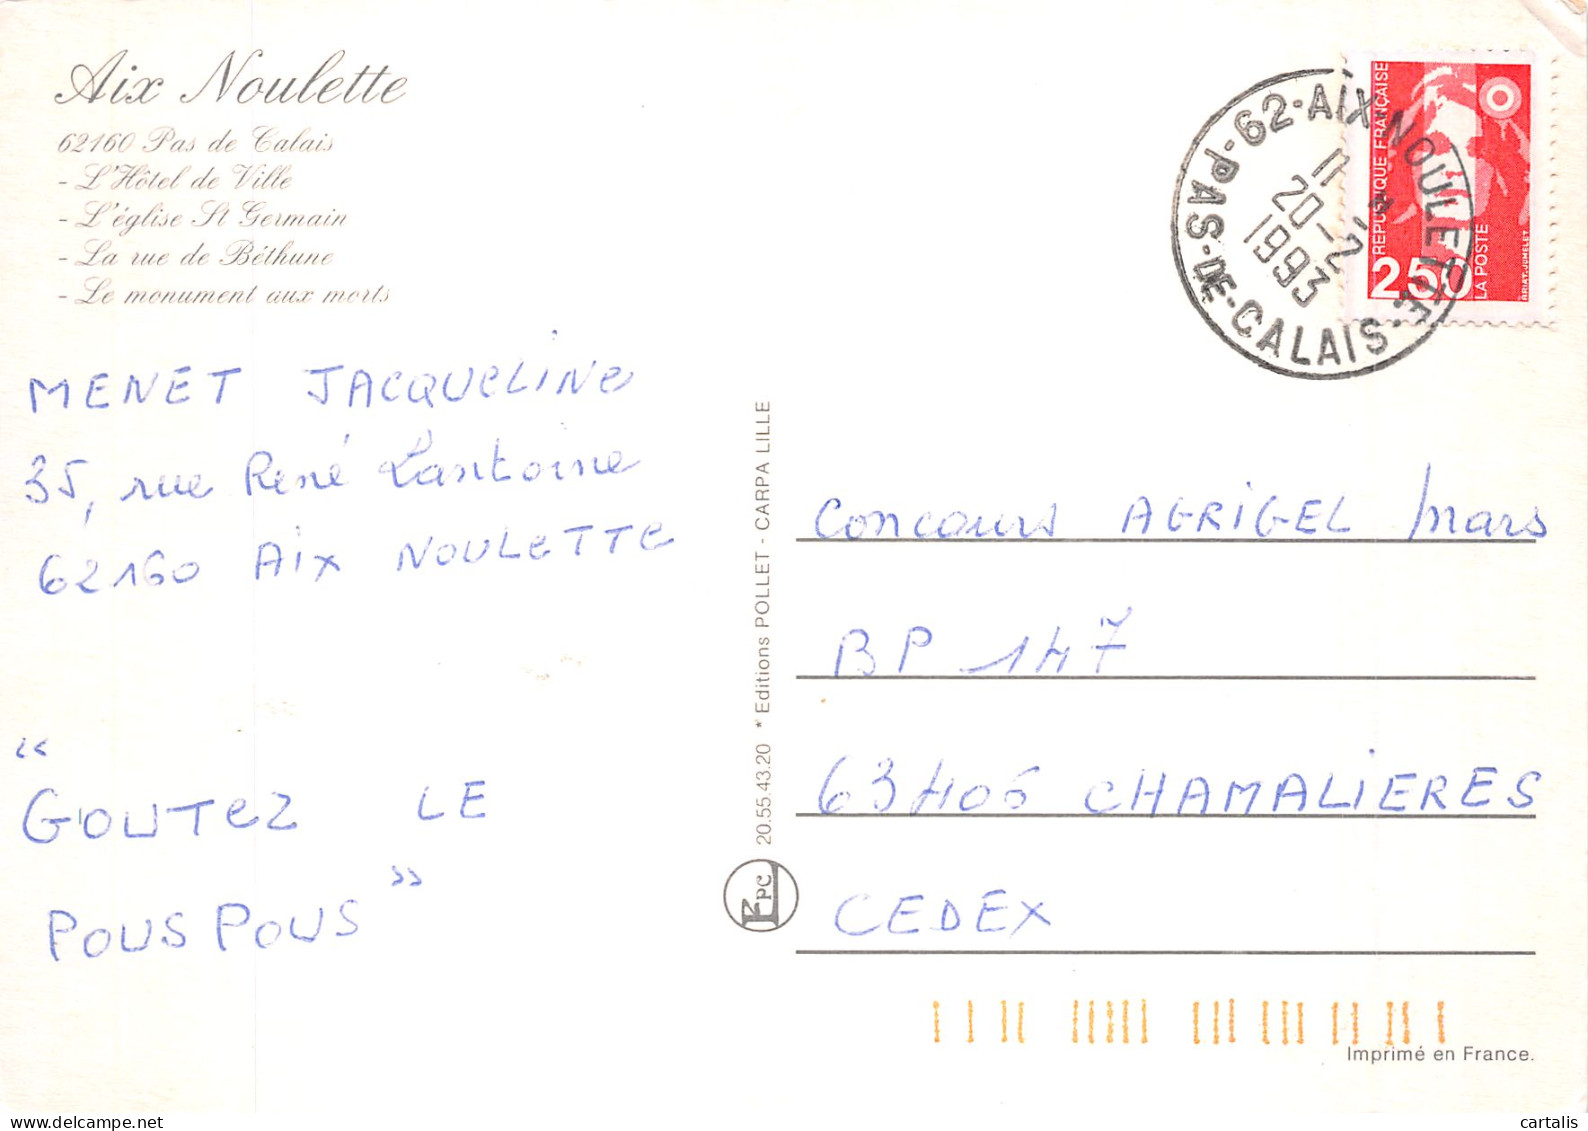 Aix Noulette
62160 Pas de Calais
- L'Hôtel de Ville
- L'église St Germain
- La rue de Béthune
- Le monument aux morts
MENET JACQUELINE
35, rue René Lantoine
62160 AIX NOULETTE
"
GOUTEZ LE
POUSPOUS "
20.55.43.20 * Editions POLLET - CARPA LILLE
PC
62-AIX-NOULETTE
P-PAS-DE-CALAIS-
11
20-2
1993
REPUBLIQUE FRANÇAISE
2,50
LA POSTE
BRIAT.JUMELET
Concours AGRIGEL Mars
BP 147
63406 CHAMALIERES
CEDEX
Imprimé en France.
delcampe.net
cartalis